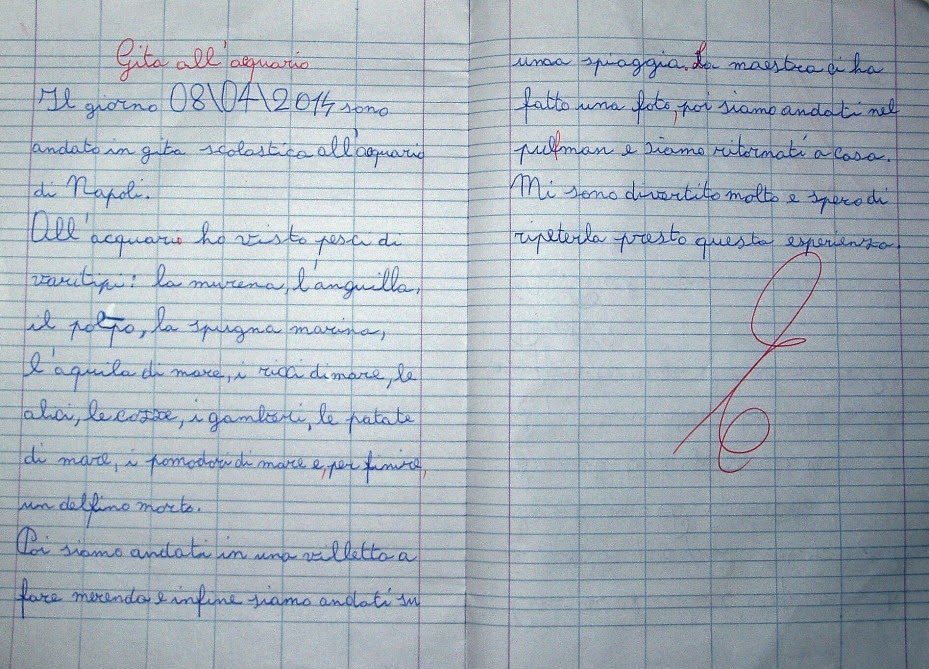 Gita all'acquario
Il giorno 08\04\2014 sono
andato in gita scolastica all'acquario
di Napoli.
All'acquario ho visto pesci di
vari tipi: la murena, l'anguilla,
il polpo, la spugna marina,
l'aquila di mare, i ricci di mare, le
alici, le cozze, i gamberi, le patate
di mare, i pomodori di mare e, per finire,
un delfino morto.
Poi siamo andati in una villetta a
fare merenda e infine siamo andati su
una spiaggia. La maestra ci ha
fatto una foto, poi siamo andati nel
pulman e siamo ritornati a casa.
Mi sono divertito molto e spero di
ripeterla presto questa esperienza.